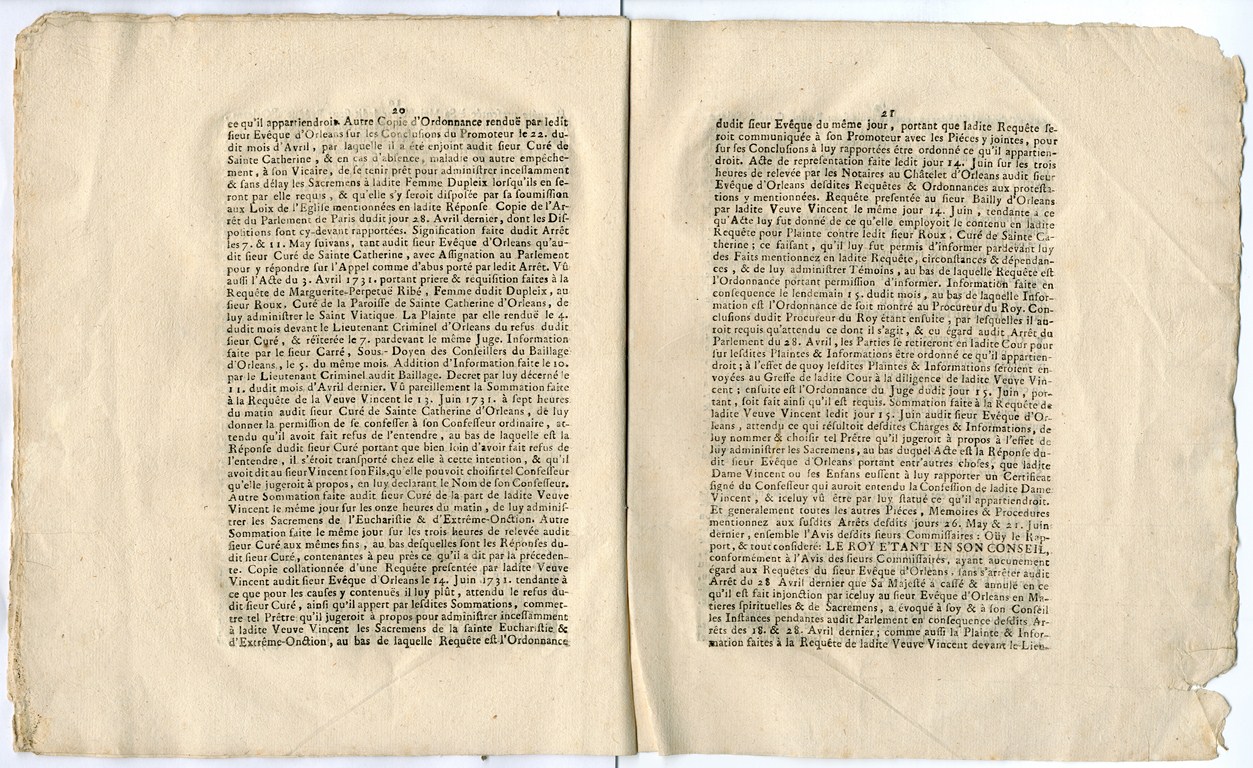 20
ce qu'il appartiendroit. Autre Copie d'Ordonnance renduë par ledit
sieur Evêque d'Orleans sur les Conclusions du Promoteur le 22. du-
dit mois d'Avril, par laquelle il a été enjoint audit sieur Curé de
Sainte Catherine, & en cas d'absence, maladie ou autre empêche-
ment, à son Vicaire, de se tenir prêt pour administrer incessamment
& sans délay les Sacremens à ladite Femme Dupleix lorsqu'ils en se-
ront par elle requis, & qu'elle s'y seroit disposée par sa soumission
aux Loix de l'Eglise mentionnées en ladite Réponse Copie de l'Ar-
rêt du Parlement de Paris dudit jour 28. Avril dernier, dont les Dis-
positions sont cy-devant rapportées. Signification faite dudit Arrêt
les 7. & 11. May suivans, tant audit sieur Evêque d'Orleans qu'au-
dit sieur Curé de Sainte Catherine, avec Assignation au Parlement
pour y répondre sur l'Appel comme d'abus porté par ledit Arrêt. Vû
aussi l'Acte du 3. Avril 1731. portant priere & requisition faites à la
Requête de Marguerite-Perpetuë Ribé, Femme dudit Dupleix, au
sieur Roux, Curé de la Paroisse de Sainte Catherine d'Orleans, de
luy administrer le Saint Viatique. La Plainte par elle renduë le 4.
dudit mois devant le Lieutenant Criminel d'Orleans du refus dudit
sieur Curé, & réïterée le 7. pardevant le même Juge. Information
faite par le sieur Carré, Sous-Doyen des Conseillers du Bailliage
d'Orleans, le 5. du même mois. Addition d'Information faite le 10.
par le Lieutenant Criminel audit Bailliage. Decret par luy décerné le
11. dudit mois d'Avril dernier. Vû pareillement la Sommation faite
à la Requête de la Veuve Vincent le 13. Juin 1731. à sept heures
du matin audit sieur Curé de Sainte Catherine d'Orleans, de luy
donner la permission de se confesser à son Confesseur ordinaire, at-
tendu qu'il avoit fait refus de l'entendre, au bas de laquelle est la
Réponse dudit sieur Curé portant que bien loin d'avoir fait refus de
l'entendre, il s'étoit transporté chez elle à cette intention, & qu'il
avoit dit au sieur Vincent son Fils, qu'elle pouvoit choisir tel Confesseur
qu'elle jugeroit à propos, en luy declarant le Nom de son Confesseur.
Autre Sommation faite audit sieur Curé de la part de ladite Veuve
Vincent le même jour sur les onze heures du matin, de luy adminis-
trer les Sacremens de l'Eucharistie & d'Extrême-Onction. Autre
Sommation faite le même jour sur les trois heures de relevée audit
sieur Curé aux mêmes fins, au bas desquelles sont les Réponses du-
dit sieur Curé, contenantes à peu près ce qu'il a dit par la préceden-
te. Copie collationnée d'une Requête presentée par ladite Veuve
Vincent audit sieur Evêque d'Orleans le 14. Juin 1731. tendante à
ce que pour les causes y contenuës il luy plût, attendu le refus du-
dit sieur Curé, ainsi qu'il appert par lesdites Sommations, commet-
tre tel Prêtre qu'il jugeroit à propos pour administrer incessamment
à ladite Veuve Vincent les Sacremens de la sainte Eucharistie &
d'Extrême-Onction, au bas de laquelle Requête est l'Ordonnance
21
dudit sieur Evêque du même jour, portant que ladite Requête se-
roit communiquée à son Promoteur avec les Piéces y jointes, pour
sur ses Conclusions à luy rapportées être ordonné ce qu'il appartien-
droit. Acte de representation faite ledit jour 14. Juin sur les trois
heures de relevée par les Notaires au Châtelet d'Orleans audit sieur
Evêque d'Orleans desdites Requêtes & Ordonnances aux protesta-
tions y mentionnées. Requête presentée au sieur Bailly d'Orleans
par ladite Veuve Vincent le même jour 14. Juin, tendante a ce
qu'Acte luy fut donné de ce qu'elle employoit le contenu en ladite
Requête pour Plainte contre ledit sieur Roux, Curé de Sainte Ca-
therine; ce faisant, qu'il luy fut permis d'informer pardevant luy
des Faits mentionnez en ladite Requête, circonstances & dépendan-
ces, & de luy administrer Témoins, au bas de laquelle Requête est
l'Ordonnance portant permission d'informer. Information faite en
consequence le lendemain 15. dudit mois, au bas de laquelle Infor-
mation est l'Ordonnance de soit montré au Procureur du Roy. Con-
clusions dudit Procureur du Roy étant ensuite, par lesquelles il au-
roit requis qu'attendu ce dont il s'agit, & eu égard audit Arrêt du
Parlement du 28. Avril, les Parties se retireront en ladite Cour pour
sur lesdites Plaintes & Informations être ordonné ce qu'il appartien-
droit; à l'effet de quoy lesdites Plaintes & Informations seroient en-
voyées au Greffe de ladite Cour à la diligence de ladite Veuve Vin-
cent; ensuite est l'Ordonnance du Juge dudit jour 15. Juin, por-
tant, soit fait ainsi qu'il est requis. Sommation faite à la Requête de
ladite Veuve Vincent ledit jour 15. Juin audit sieur Evêque d'Or-
leans, attendu ce qui résultoit desdites Charges & Informations, de
luy nommer & choisir tel Prêtre qu'il jugeroit à propos à l'effet de
luy administrer les Sacremens, au bas duquel Acte est la Réponse du-
dit sieur Evêque d'Orleans portant entr'autres choses, que ladite
Dame Vincent ou ses Enfans eussent à luy rapporter un Certificat
signé du Confesseur qui auroit entendu la Confession de ladite Dame
Vincent, & iceluy vû être par luy statué ce qu'il appartiendroit.
Et generalement toutes les autres Piéces, Memoires & Procedures
mentionnez aux susdits Arrêts desdits jours 26. May & 21. Juin
dernier, ensemble l'Avis desdits sieurs Commissaires: Oüy le Rap-
port, & tout consideré: LE ROY ETANT EN SON CONSEIL,
conformément à l'Avis des sieurs Commissaires, ayant aucunement
égard aux Requêtes du sieur Evêque d'Orleans, sans s'arrêter audit
Arrêt du 28 Avril dernier que Sa Majesté a cassé & annulé en ce
qu'il est fait injonction par iceluy au sieur Evêque d'Orleans en Ma-
tieres spirituelles & de Sacremens, a évoqué à soy & à son Conseil
les Instances pendantes audit Parlement en consequence desdits Ar-
rêts des 18. & 28. Avril dernier; comme aussi la Plainte & Infor-
mation faites à la Requête de ladite Veuve Vincent devant le Lieu-